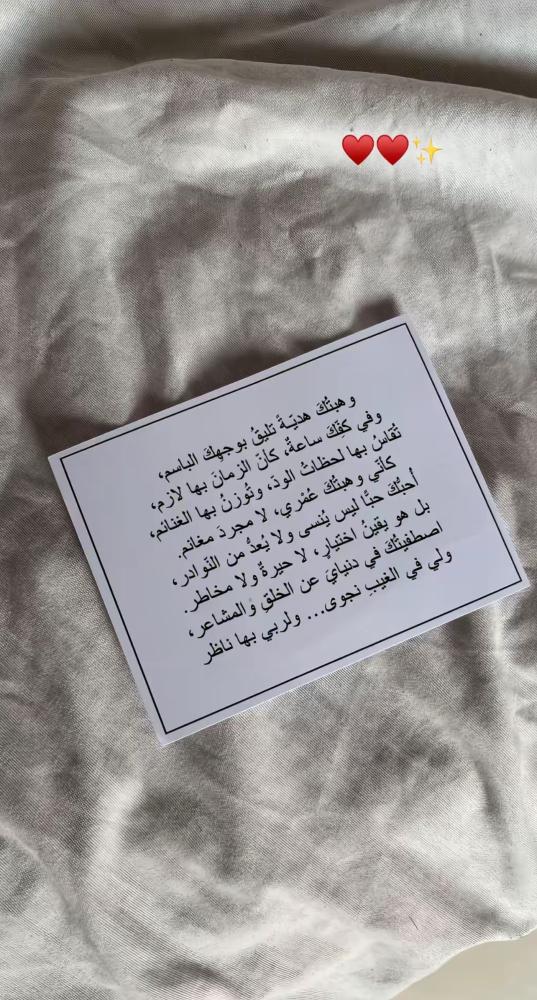 ♥️♥️✨
وهبتُكَ هديّةً تليقُ بوجهِكَ الباسم،
وفي كفِّكَ ساعةٌ، كأنّ الزمانَ بها لازم،
تُقاسُ بها لحظاتُ الودّ، وتُوزنُ بها الغنائم،
كأنّي وهبتُكَ عُمْري، لا مجردَ مغانم.
أحبُّكَ حبًّا ليس يُنسى ولا يُعدُّ من النّوادر،
بل هو يقينُ اختيارٍ، لا حيرةٌ ولا مخاطر.
اصطفيتُكَ في دنيايَ عن الخلقِ والمشاعر،
ولي في الغيبِ نجوى... ولربي بها ناظر